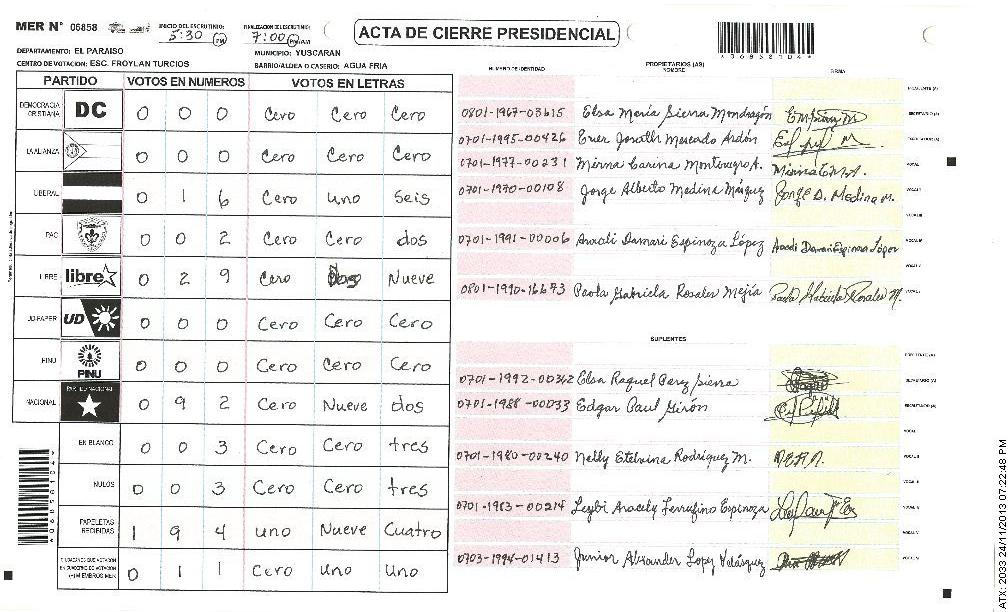 MER N° 06858 INICIO DEL ESCRUTINIO: 5:30 PM FINALIZACION DE ESCRUTINIO: 7:00 PM
ACTA DE CIERRE PRESIDENCIAL
DEPARTAMENTO: EL PARAISO MUNICIPIO: YUSCARAN
CENTRO DE VOTACION: ESC. FROYLAN TURCIOS BARRIO/ALDEA O CASERIO: AGUA FRIA
PARTIDO VOTOS EN NUMEROS VOTOS EN LETRAS
DEMOCRACIA CRISTIANA DC 0 0 0 Cero Cero Cero
LA ALIANZA 0 0 0 Cero Cero Cero
LIBERAL 0 1 6 Cero uno seis
PAC 0 0 2 Cero Cero dos
LIBRE libre 0 2 9 Cero Dos Nueve
UD-FAPER UD 0 0 0 Cero Cero Cero
PINU PINU 0 0 0 Cero Cero Cero
NACIONAL PARTIDO NACIONAL 0 9 2 Cero Nueve dos
EN BLANCO 0 0 3 Cero Cero tres
NULOS 0 0 3 Cero Cero tres
PAPELETAS RECIBIDAS 1 9 4 uno Nueve Cuatro
CIUDADANOS QUE VOTARON EN CUADERNO DE VOTACION (+) MIEMBROS MER 0 1 1 Cero Uno Uno
NUMERO DE IDENTIDAD PROPIETARIOS (AS) NOMBRE FIRMA
PRESIDENTE (A)
0801-1967-03615 Elsa María Sierra Mondragón SECRETARIO (A)
0701-1995-00426 Erer Jonath Mercado Ardón ESCRUTADOR (A)
0701-1977-00231 Mirna Carina Montenegro A. VOCAL I
0701-1970-00108 Jorge Alberto Medina Márquez Jorge A. Medina M. VOCAL II
VOCAL III
0701-1991-00006 Aracli Damari Espinoza López Aracli Damari Espinoza López VOCAL IV
VOCAL V
0801-1990-16673 Paola Gabriela Rosales Mejía Paola Gabriela Rosales M.
SUPLENTES
PRESIDENTE (A)
0701-1992-00342 Elsa Raquel Perez Sierra SECRETARIO (A)
0701-1988-00033 Edgar Paul Girón ESCRUTADOR (A)
VOCAL I
0701-1980-00240 Nelly Etelvina Rodríguez M. N.E.R.M. VOCAL II
VOCAL III
0701-1983-00214 Leybi Aracely Ferrufino Espinoza VOCAL IV
VOCAL V
0703-1994-01413 Junior Alexander Lopez Velásquez
*06858104*
ATX: 2033 24/11/2013 07:22:48 PM